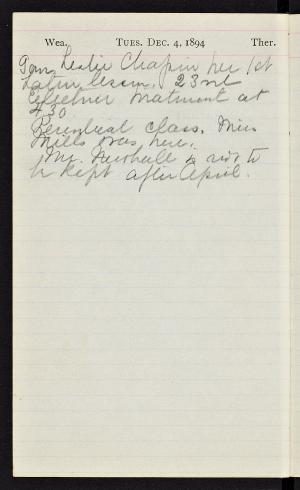 Wea. TUES. DEC. 4, 1894 Ther.
Gave Leslie Chapin her 1st
Latin lesson. 23rd
treatment at
4.30
class. Miss
Mills was here.
Mr. Newhall is not to
be kept after April.